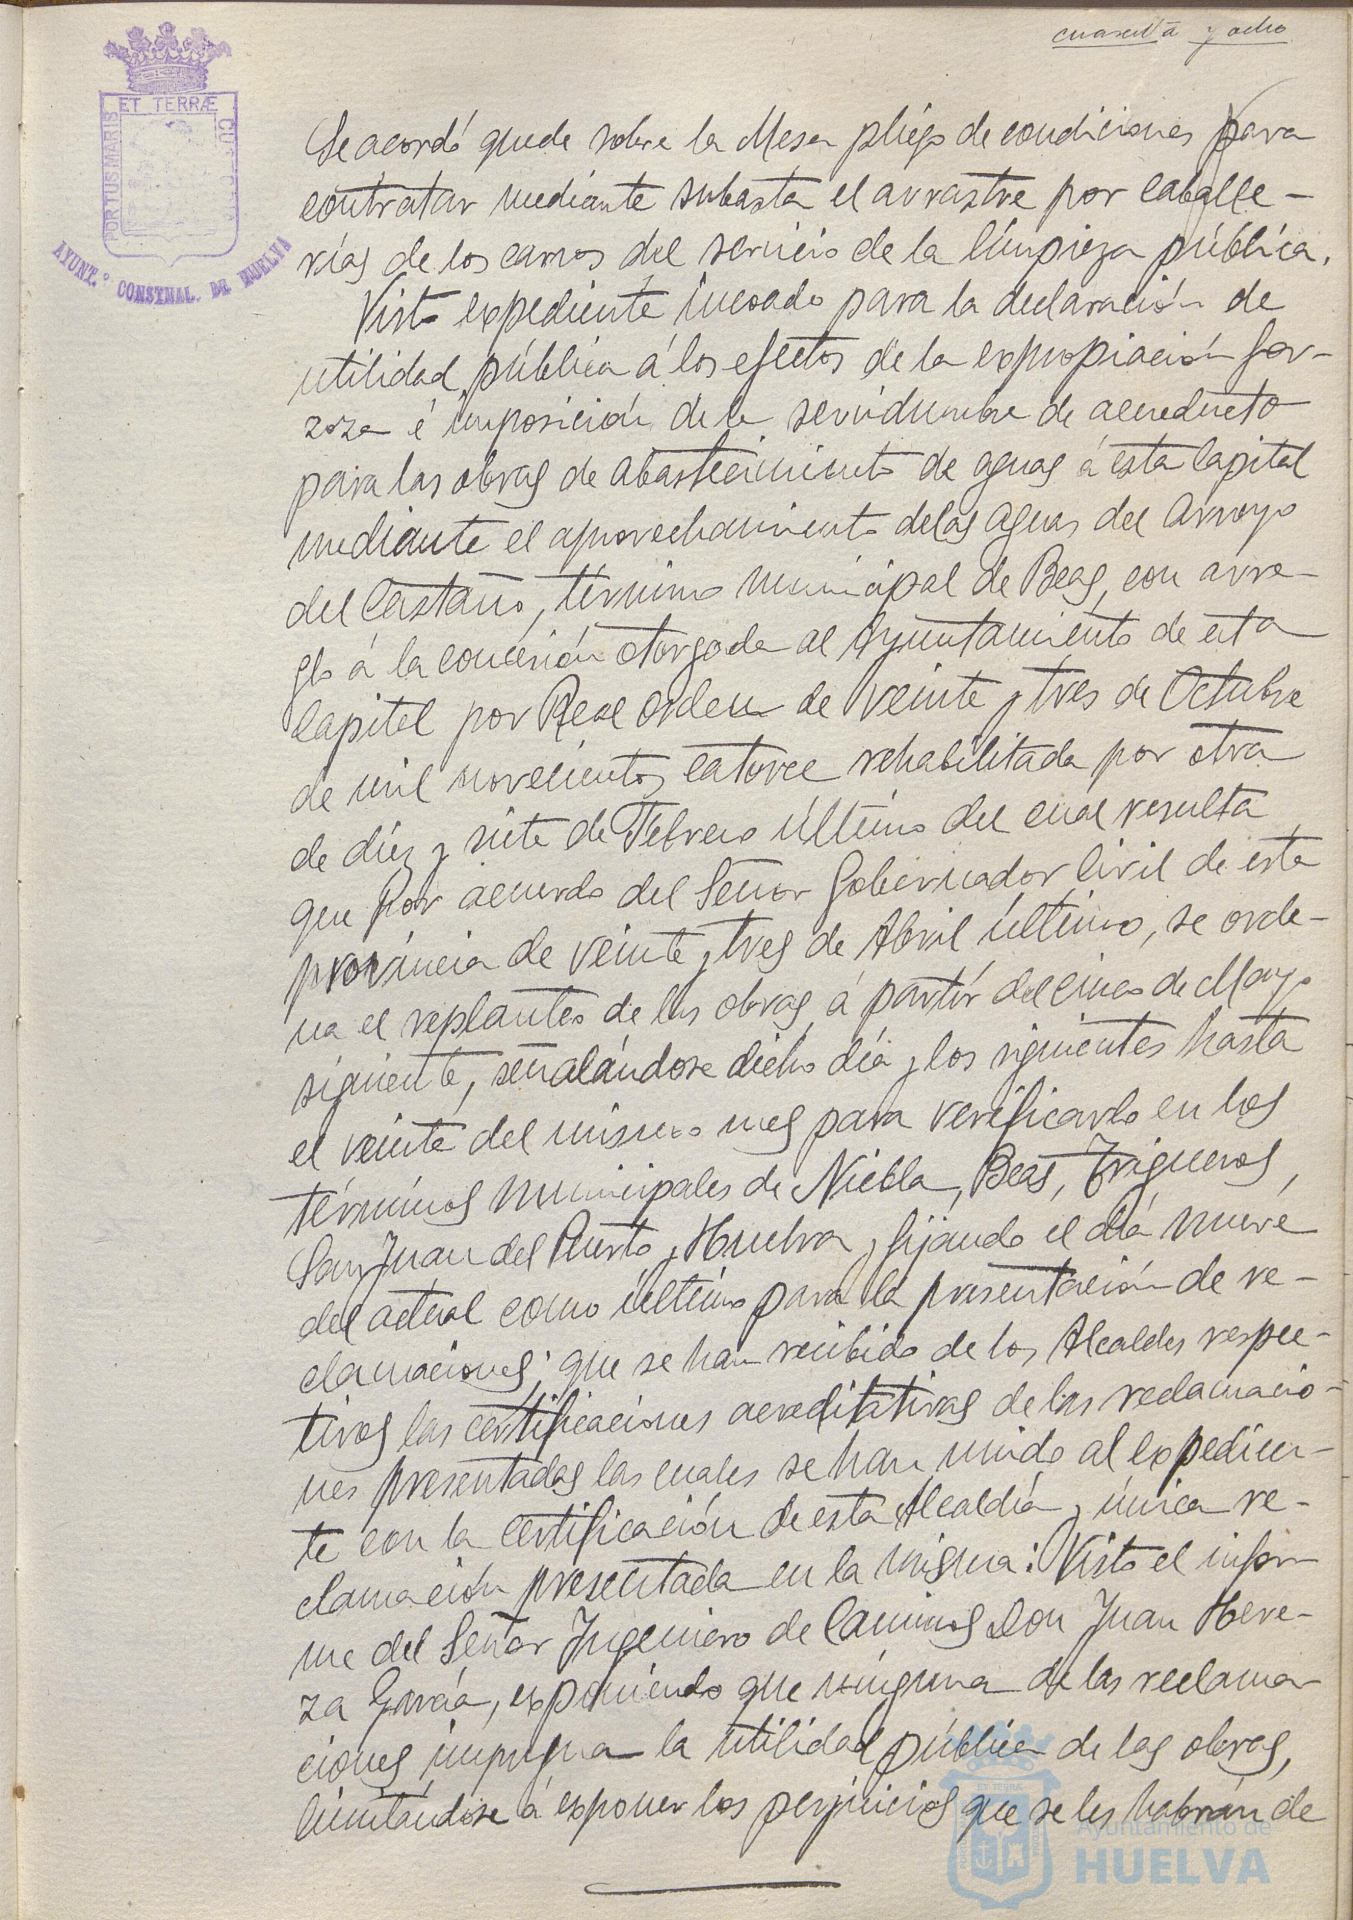 cuarenta y ocho
ET TERRÆ
PORTUS MARIS
CU
AYUNT.º CONSTNAL. DE HUELVA
Se acordó quede sobre la Mesa pliego de condiciones para
contratar mediante subasta el arrastre por caballe-
rías de los carros del servicio de la limpieza pública.
Visto expediente incoado para la declaración de
utilidad pública á los efectos de la expropiación for-
zosa é imposición de la servidumbre de acueducto
para las obras de abastecimiento de aguas á esta Capital
mediante el aprovechamiento de las aguas del Arroyo
del Castaño, término municipal de Beas, con arre-
glo á la concesión otorgada al Ayuntamiento de esta
Capital por Real orden de veinte y tres de Octubre
de mil novecientos catorce rehabilitada por otra
de diez y siete de Febrero último del cual resulta
que Por acuerdo del Señor Gobernador Civil de esta
provincia de veinte y tres de Abril último, se orde-
na el replanteo de las obras á partir del cinco de Mayo
siguiente, señalándose dicho día y los siguientes hasta
el veinte del mismo mes para verificarlo en los
términos municipales de Niebla, Beas, Trigueros,
San Juan del Puerto y Huelva, fijando el día nueve
del actual como último para la presentación de re-
clamaciones; que se han recibido de los Alcaldes respec-
tivos las certificaciones acreditativas de las reclamacio-
nes presentadas las cuales se han unido al expedien-
te con la certificación de esta Alcaldía y única re-
clamación presentada en la misma: Visto el infor-
me del Señor Ingeniero de Caminos Don Juan Here-
za García, exponiendo que ninguna de las reclama-
ciones impugna la utilidad pública de las obras,
limitándose á exponer los perjuicios que se les habrán de
Ayuntamiento de
HUELVA